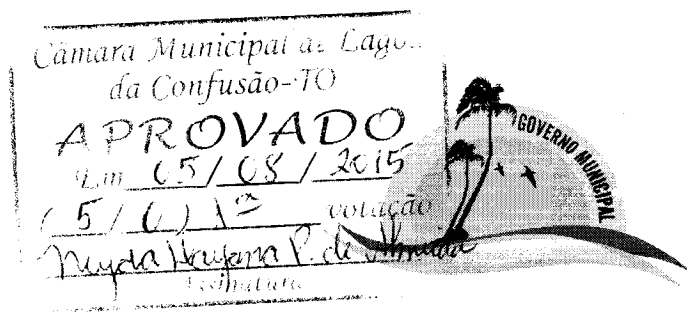 Câmara Municipal de Lagoa
da Confusão-TO
APROVADO
Em 05/08/2015
(5/0) 1ª votação
P. de Almeida
Assinatura
GOVERNO MUNICIPAL